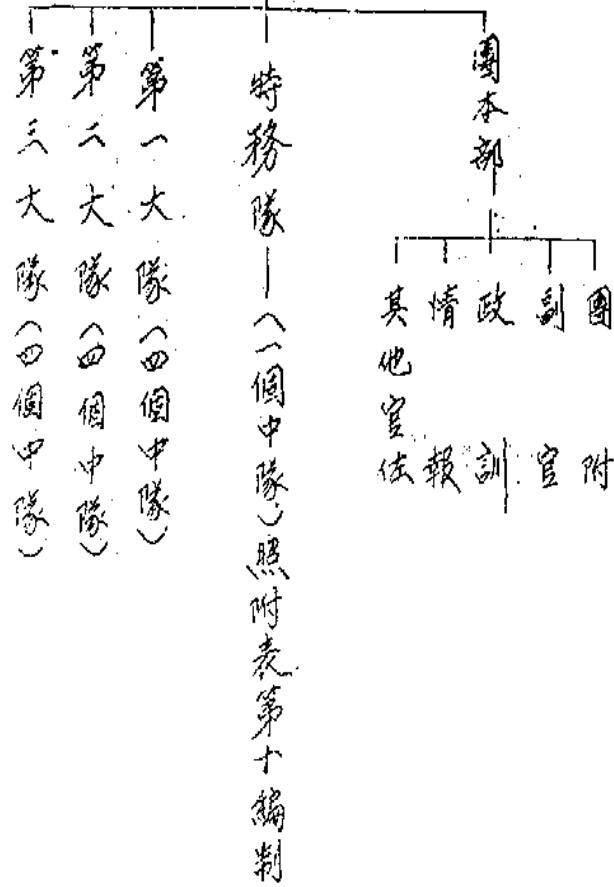 團本部
團附
副官
政訓
情報
其他官佐
特務隊——(一個中隊)照附表第十編制
第一大隊(四個中隊)
第二大隊(四個中隊)
第三大隊(四個中隊)